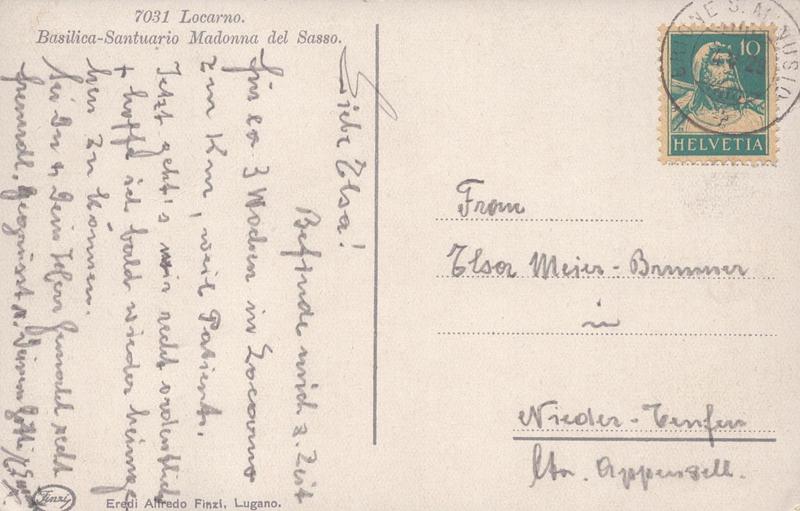 7031 Locarno.
Basilica-Santuario Madonna del Sasso.
Liebe Elsa!
Befinde mich z. Zeit
für ca 3 Wochen in Locarno
zur Kur, weil Patient.
Jetzt geht's mir recht ordentlich
+ hoffe ich bald wieder heimge-
hen zu können.
Sei Du & Dein Herr Gemahl recht
freundl. gegrüsst v. Deinem Götti
Finzi
Eredi Alfredo Finzi, Lugano.
10
HELVETIA
Frau
Elsa Meier-Brunner
in
Nieder-Teufen
Ctn. Appenzell.